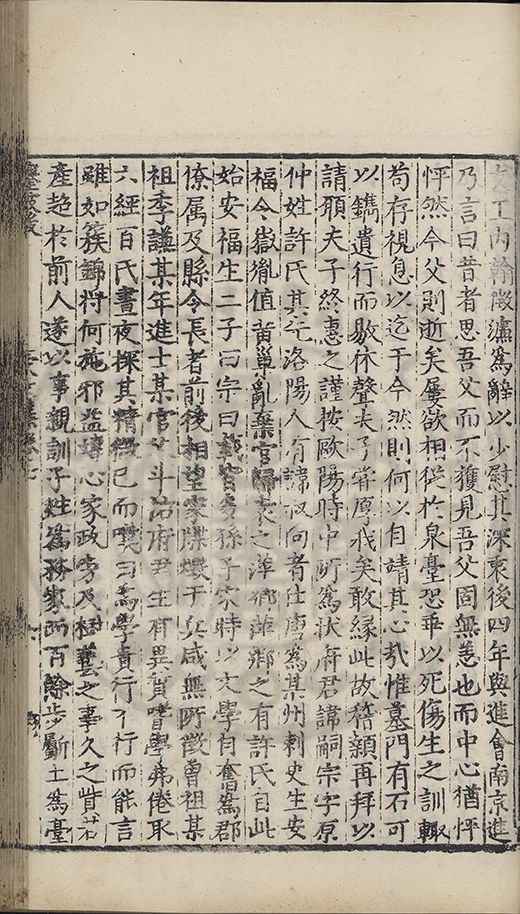 大江內翰徵濂為辭以少慰其深衷後四年與進會南京進
乃言曰昔者思吾父而不獲見吾父固無恙也而中心猶怦
怦然今父則逝矣屢欲相從於泉臺恐乖以死傷生之訓輙
苟存視息以迄于今然則何以自靖其心扎惟墓門有石可
以鐫遺行而勒休聲夫子嘗厚我矣敢緣此故稽顙再拜以
請願夫子終惠之謹按歐陽時中所為狀府君諱嗣宗字原
仲姓許氏其先洛陽人有諱叔向者仕唐為某州刺史生安
福令嶽胤值黃巢亂棄官歸袁之萍鄉萍鄉之有許氏自此
始安福生二子曰宗曰試皆多孫子宋時以文學自奮為郡
僚屬及縣令長者前後相望家牒燬于兵咸無所徵曾祖某
祖季謙某年進士某官父斗祐府君生有異質嗜學弗倦取
六經百氏晝夜探其精微已而嘆曰為學貴行不行而能言
雖如簇錦將何施邪益專心家政旁及樹藝之事久之貲
產超於前人遂以事親訓子姓為務家西百餘步斷土為臺